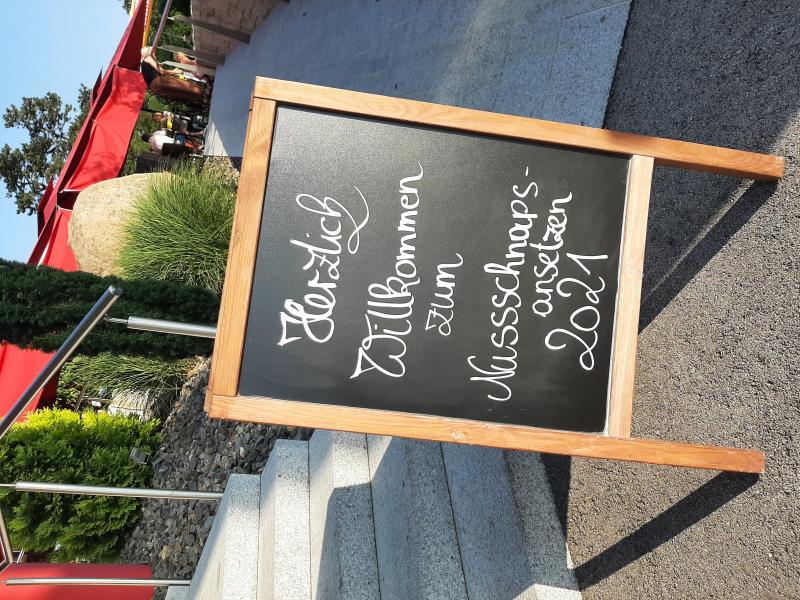 Herzlich
Willkommen
zum
Nussschnaps-
ansetzen
2021